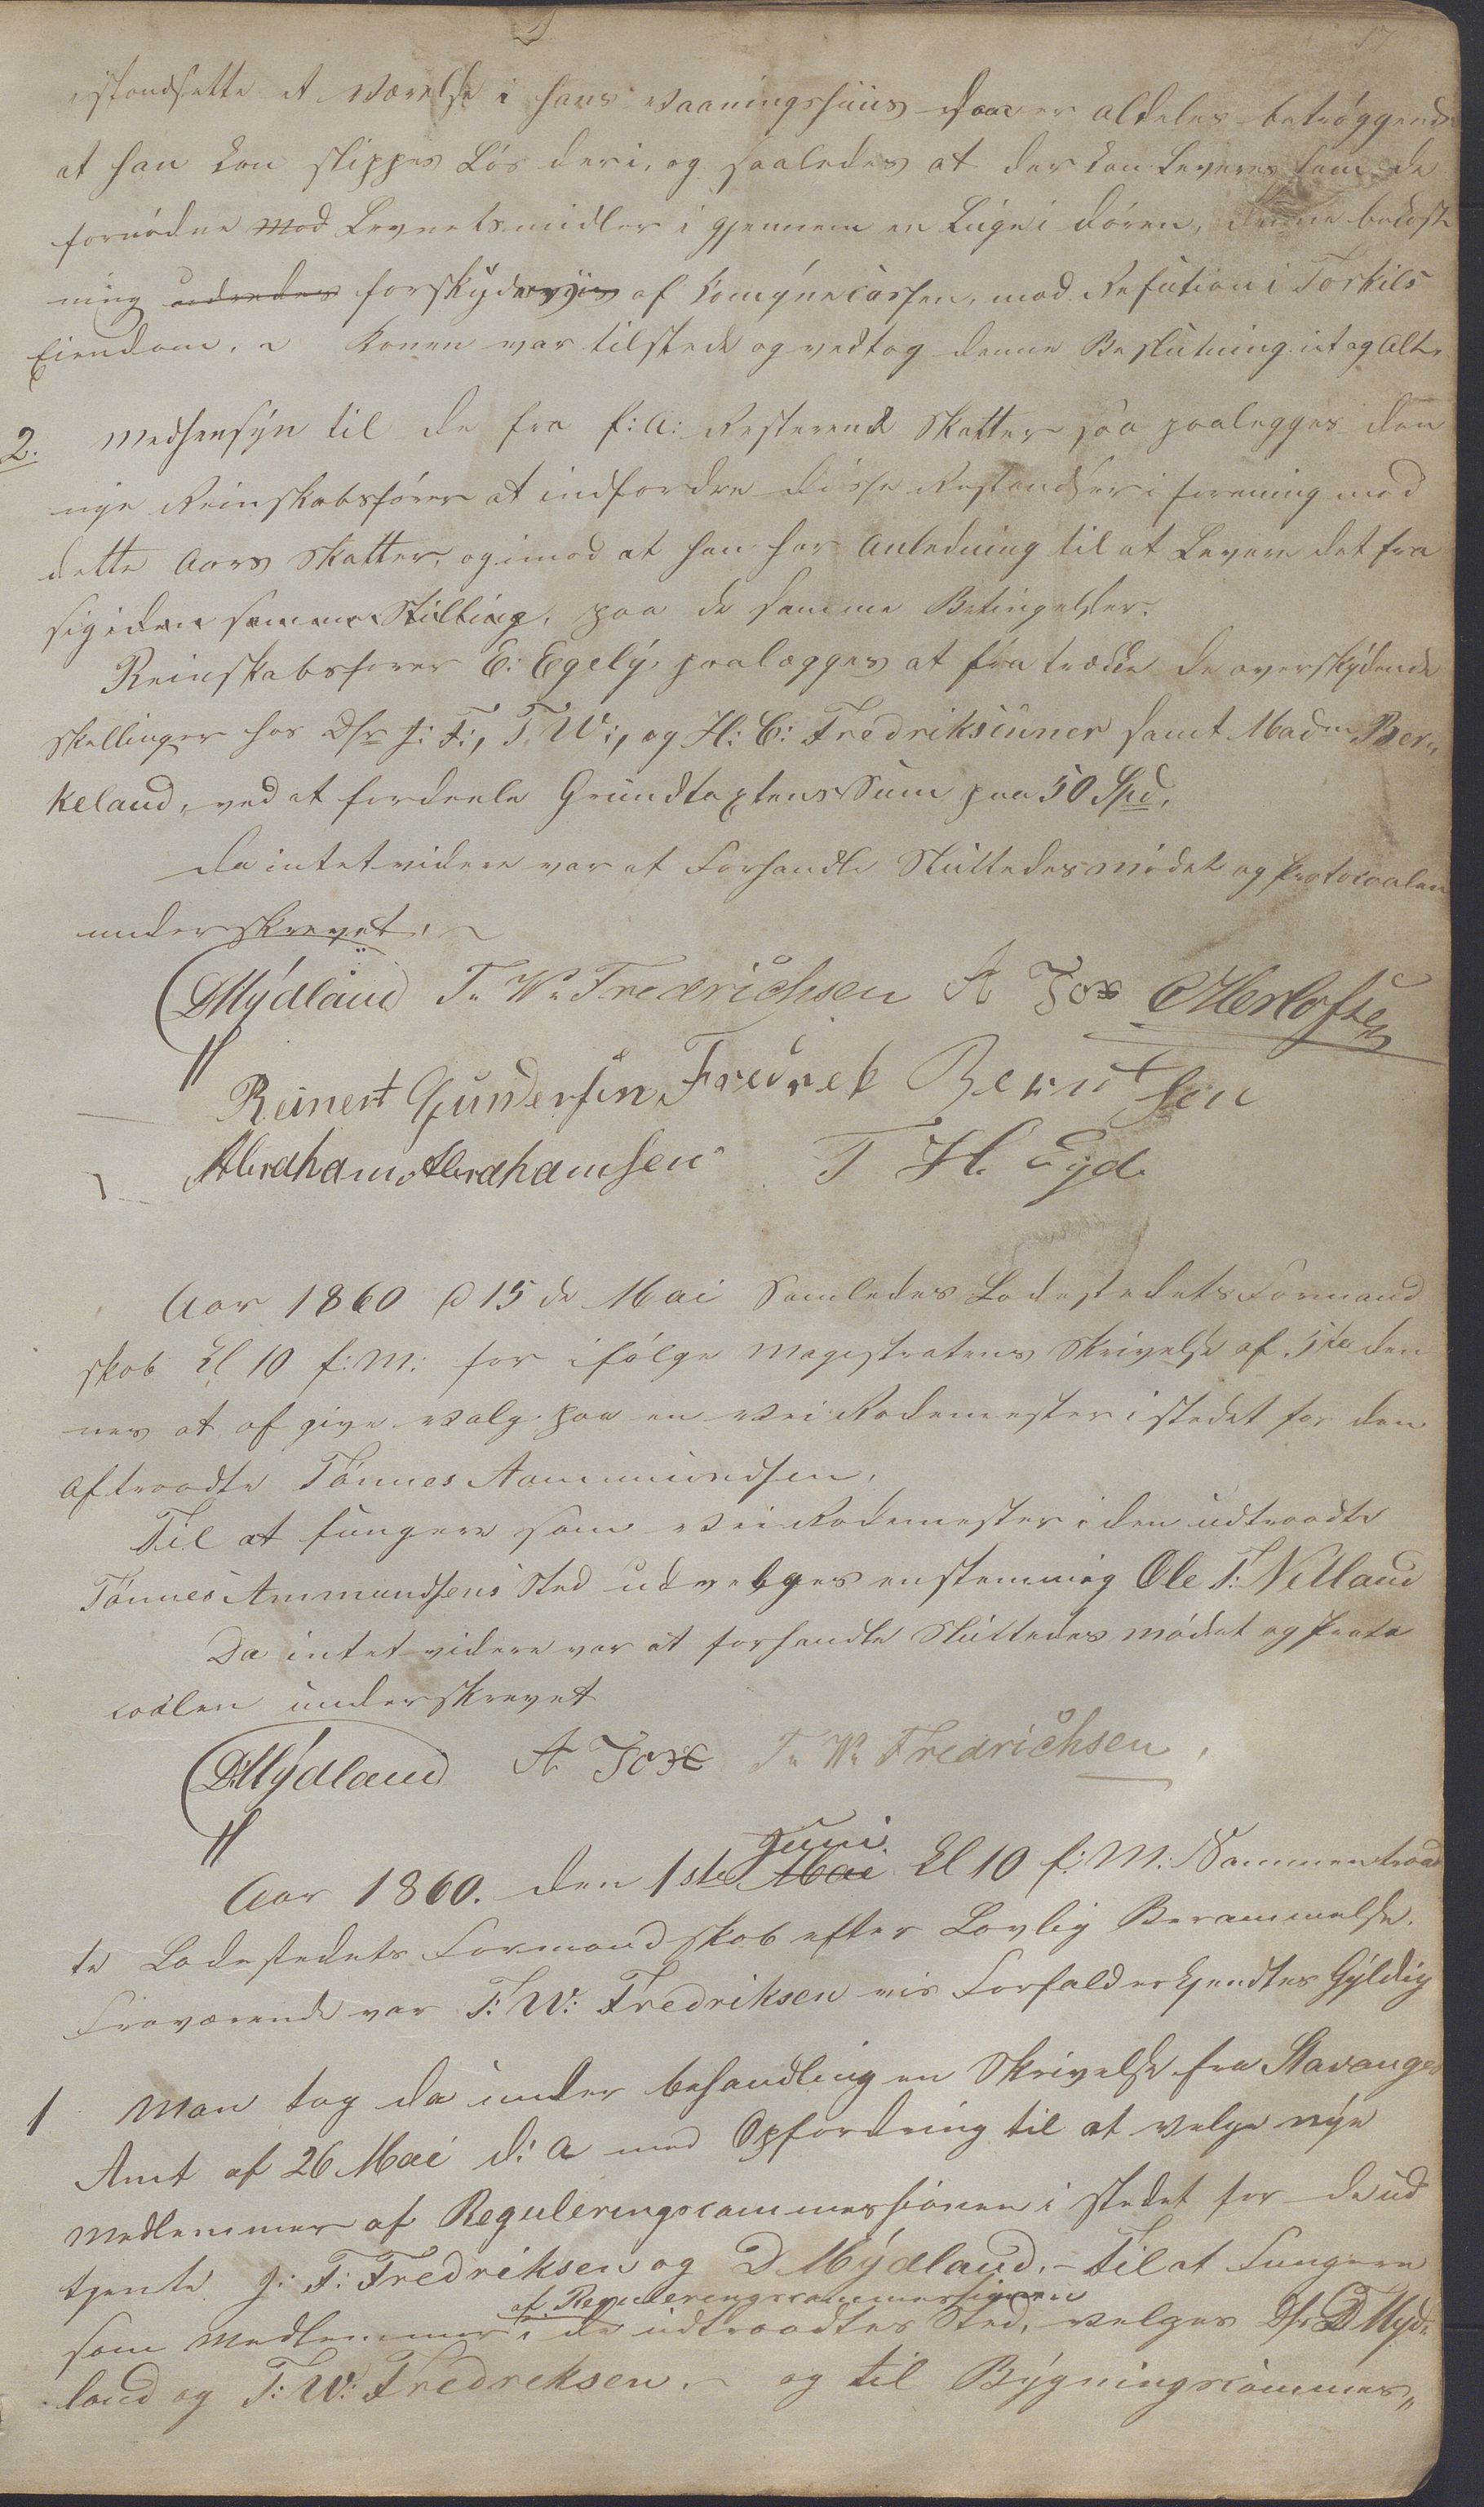 17
istandsette et Værelse i hans Vaaningshuus som er aldeles betryggende
at han kan slippes Løs deri, og saaledes at der kan Leveres ham de
fornødne med Levnetsmidler i gjennem en Luge i døren, denne bekost
ning udredes forskydesviis af Comunecassen, mod Refution i Torkils
Eiendom. Konen var tilstede og vedtog denne Beslutning i et og Alt.
2. Medhensyn til de fra f: A: Resterende Skatter saa paalegges den
nye Reinskabsfører at indfordre disse Restandser i forening med
dette Aars Skatter, og imod at han har Anledning til at Levere det fra
sig i den samme Stilling, paa de samme Betingelser.
Reinskabsfører E: Egely, paalegges at fratrække de overskydende
skellinger hos Dhr J: F:, T. W:, og H: C: Fredriksenner samt Madm Ber„
keland, ved at fordeele Grundtaxtens Sum paa 50 Spd.
Da intet videre var at Forhandle Sluttedes mødet og Protocoalen
underskrevet.
DMydland T. W. Fredrichsen A Fox OHerlofsen
Reinert Gundersen Fredrek Berntsen
Abraham Abrahamsen T H. Eyde
Aar 1860 d 15 de Mai Samledes Ladestedets Formand
skab Kl 10 f: M: for ifølge Magistratens Skrivelse af 5te den
nes at af give valg paa en Vei Rodemester i stedet for den
aftraadte Tønnes Aammundsen.
Til at fungere som Vei Rodemester i den udtraadte
Tønnes Ammundsens Sted udvelges enstemmig Ole T: Netland
Da intet videre var at forhandle Sluttedes mødet og Proto
coalen underskrevet
DMydland A Fox T. W. Fredrichsen.
Juni
Aar 1860. den 1ste Mai Kl 10 f: M: Sammentraad
te Ladestedets Formandskab efter Lovlig Berammelse.
Fraværende var T: W: Fredriksen vis Forfald erkjendtes Gyldig
1 Man tog da under behandling en Skrivelse fra Stavanger
Amt af 26 Mai d: A med Opfordring til at velge nye
Medlemmer af Reguleringscommessionen i stedet for de ud
tjente J: F: Fredriksen og D Mydland. – Til at Fungere
af Reguleringscommessionen
som Medlemmer i de udtraadtes Sted, velges Dhr D Myd„
land og T: W: Fredreksen. – og til Bygningscommes„